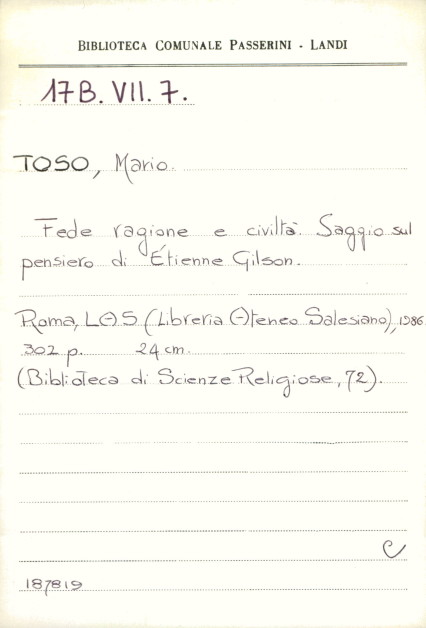 BIBLIOTECA COMUNALE PASSERINI - LANDI
17B. VII. 7.
TOSO, Mario.
Fede ragione e civiltà. Saggio sul
pensiero di Étienne Gilson.
Roma, LAS (Libreria Ateneo Salesiano), 1986
302 p. 24 cm.
(Biblioteca di Scienze Religiose, 72).
C
187819